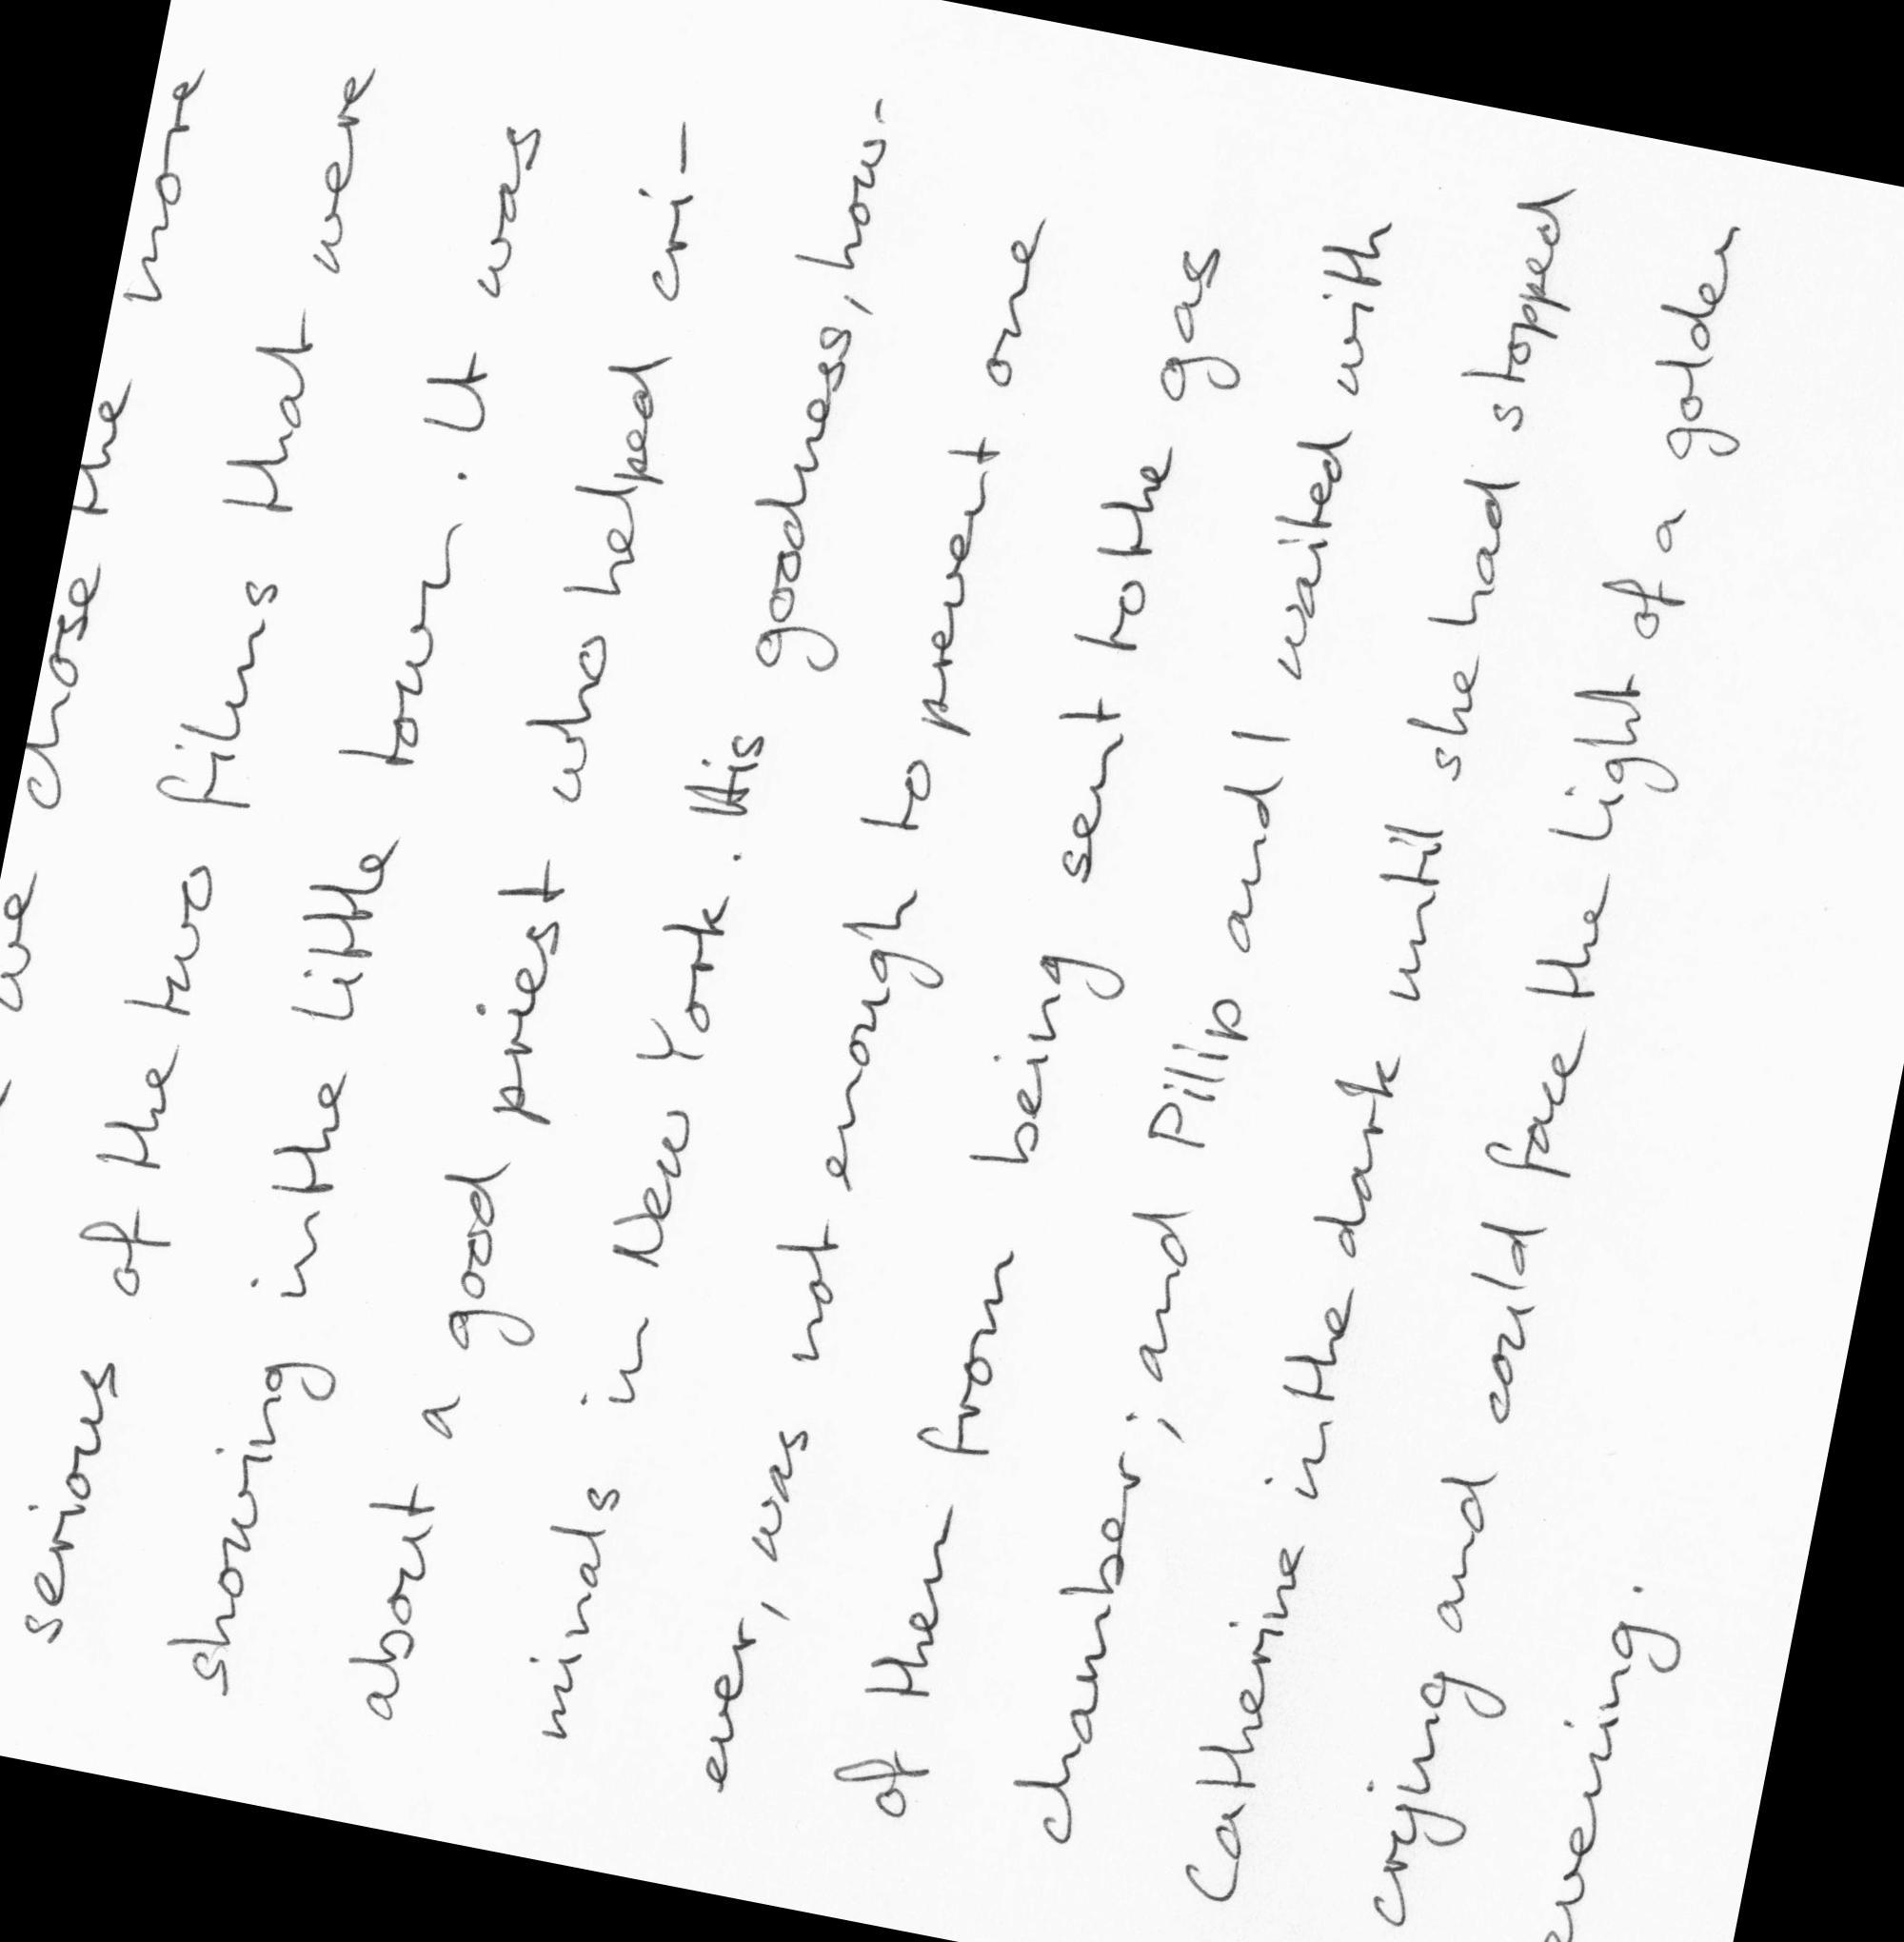 we chose the more
serious of the two films that were
showing in the little town. It was
about a good priest who helped cri-
minals in New York. His goodness, how-
ever, was not enough to prevent one
of them from being sent to the gas
chamber; and Pilip and I waited with
Catherine in the dark until she had stopped
crying and could face the light of a golden
evening.